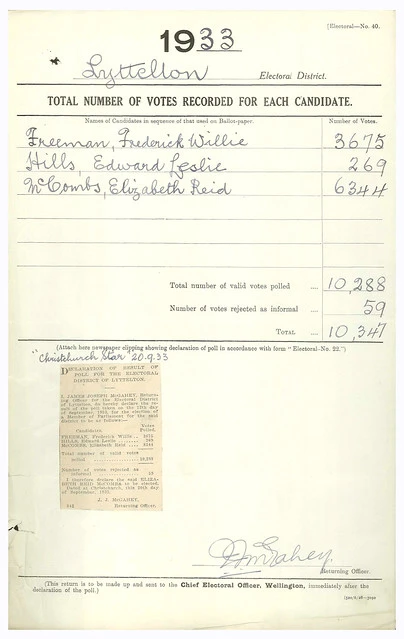 (Electoral—No. 40.
1933
Lyttelton Electoral District.
TOTAL NUMBER OF VOTES RECORDED FOR EACH CANDIDATE.
Names of Candidates in sequence of that used on Ballot-paper. Number of Votes.
Freeman, Frederick Willie 3675
Hills, Edward Leslie 269
McCombs, Elizabeth Reid 6344
Total number of valid votes polled .... 10,288
Number of votes rejected as informal .... 59
TOTAL .... 10,347
(Attach here newspaper clipping showing declaration of poll in accordance with form "Electoral—No. 22.")
"Christchurch Star" 20.9.33
DECLARATION OF RESULT OF
POLL FOR THE ELECTORAL
DISTRICT OF LYTTELTON.
I, JAMES JOSEPH McGAHEY, Return-
ing Officer for the Electoral District
of Lyttelton, do hereby declare the re-
sult of the poll taken on the
of September, 1933, for the election of
a Member of Parliament for the said
district to be as follows:—
Votes
Candidates. Polled.
FREEMAN, Frederick Willie .. 3675
HILLS, Edward Leslie .. 269
McCOMBS, Elizabeth Reid .. 6344
Total number of valid votes
polled .. 10,288
Number of votes rejected as
informal ..
I therefore declare the said ELIZA-
BETH REID McCOMBS to be elected.
Dated at Christchurch, this
September, 1933.
J. J. McGAHEY,
Returning Officer.
J. J. McGahey.
Returning Officer.
(This return is to be made up and sent to the Chief Electoral Officer, Wellington, immediately after the
declaration of the poll.)